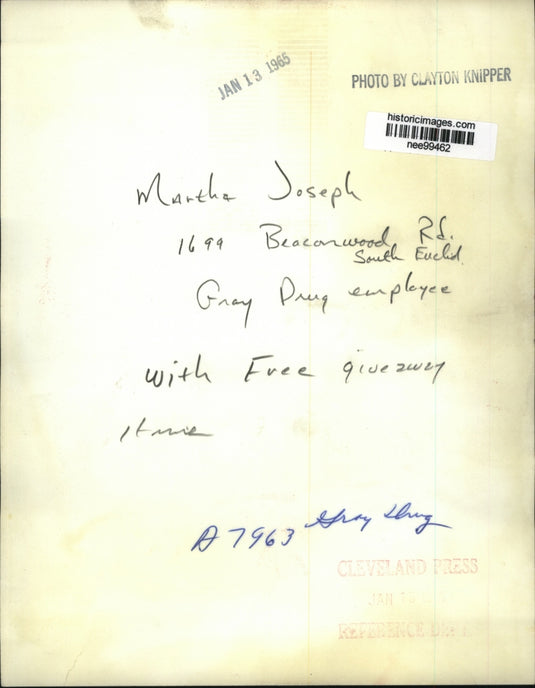 JAN 13 1965
PHOTO BY CLAYTON KNIPPER
historicimages.com
nee99462
Martha Joseph
1699 Beaconwood Rd.
South Euclid.
Gray Drug employee
With Free giveaway
A 7963 Gray Drug
CLEVELAND PRESS
JAN
REFERENCE